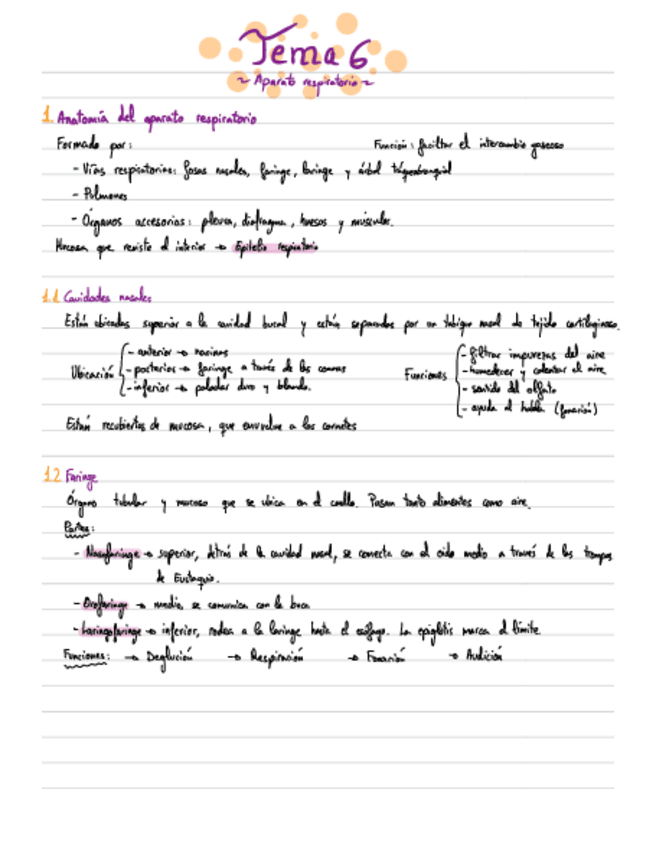 Tema 6
~ Aparato respiratorio ~
1. Anatomía del aparato respiratorio
Formado por: Función: facilitar el intercambio gaseoso
- Vías respiratorias: fosas nasales, faringe, laringe y árbol traqueobronquial
- Pulmones
- Órganos accesorios: pleura, diafragma, huesos y músculos.
Mucosa que reviste el interior → Epitelio respiratorio
1.1 Cavidades nasales
Están ubicadas superior a la cavidad bucal y están separadas por un tabique nasal de tejido cartilaginoso.
Ubicación
- anterior → narinas
- posterior → faringe a través de las coanas
- inferior → paladar duro y blando.
Funciones
- filtrar impurezas del aire
- humedecer y calentar el aire
- sentido del olfato
- ayuda al habla (fonación)
Están recubiertas de mucosa, que envuelve a los cornetes
1.2 Faringe
Órgano tubular y mucoso que se ubica en el cuello. Pasan tanto alimentos como aire.
Partes:
- Nasofaringe → superior, detrás de la cavidad nasal, se conecta con el oído medio a través de las trompas
de Eustaquio.
- Orofaringe → medio, se comunica con la boca
- Laringofaringe → inferior, rodea a la laringe hasta el esófago. La epiglotis marca el límite
Funciones: → Deglución → Respiración → Fonación → Audición